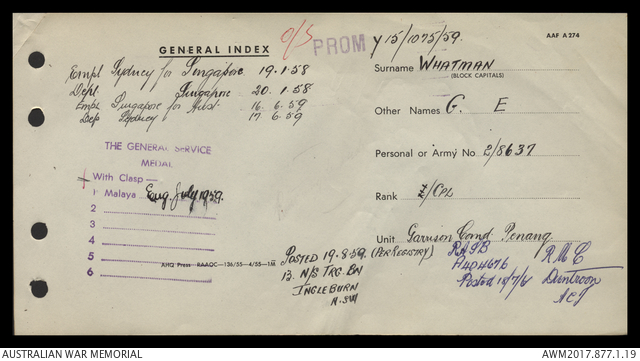 GENERAL INDEX
O/S
PROM
y 15/1075/59.
AAF A274
Empl Sydney for Singapore 19.1.58
Depl Singapore 20.1.58
Empl Singapore for Aust. 16.6.59
Dep Sydney 17.6.59
Surname WHATMAN
(BLOCK CAPITALS)
Other Names G. E
Personal or Army No. 2/8637
Rank T/CPL
Unit Garrison Comd Penang
(PER REGISTRY)
THE GENERAL SERVICE
MEDAL
With Clasp —
1 Malaya Eng. July 1959.
2
3
4
5
6
AHQ Press RAAOC—136/55—4/55—1M
POSTED 19.8.59
13. N/S TRG. BN
INGLEBURN
N.SW
RASB
A404676
Posted 10/7/61
R.M.C
Duntroon
ACT
AUSTRALIAN WAR MEMORIAL
AWM2017.877.1.19